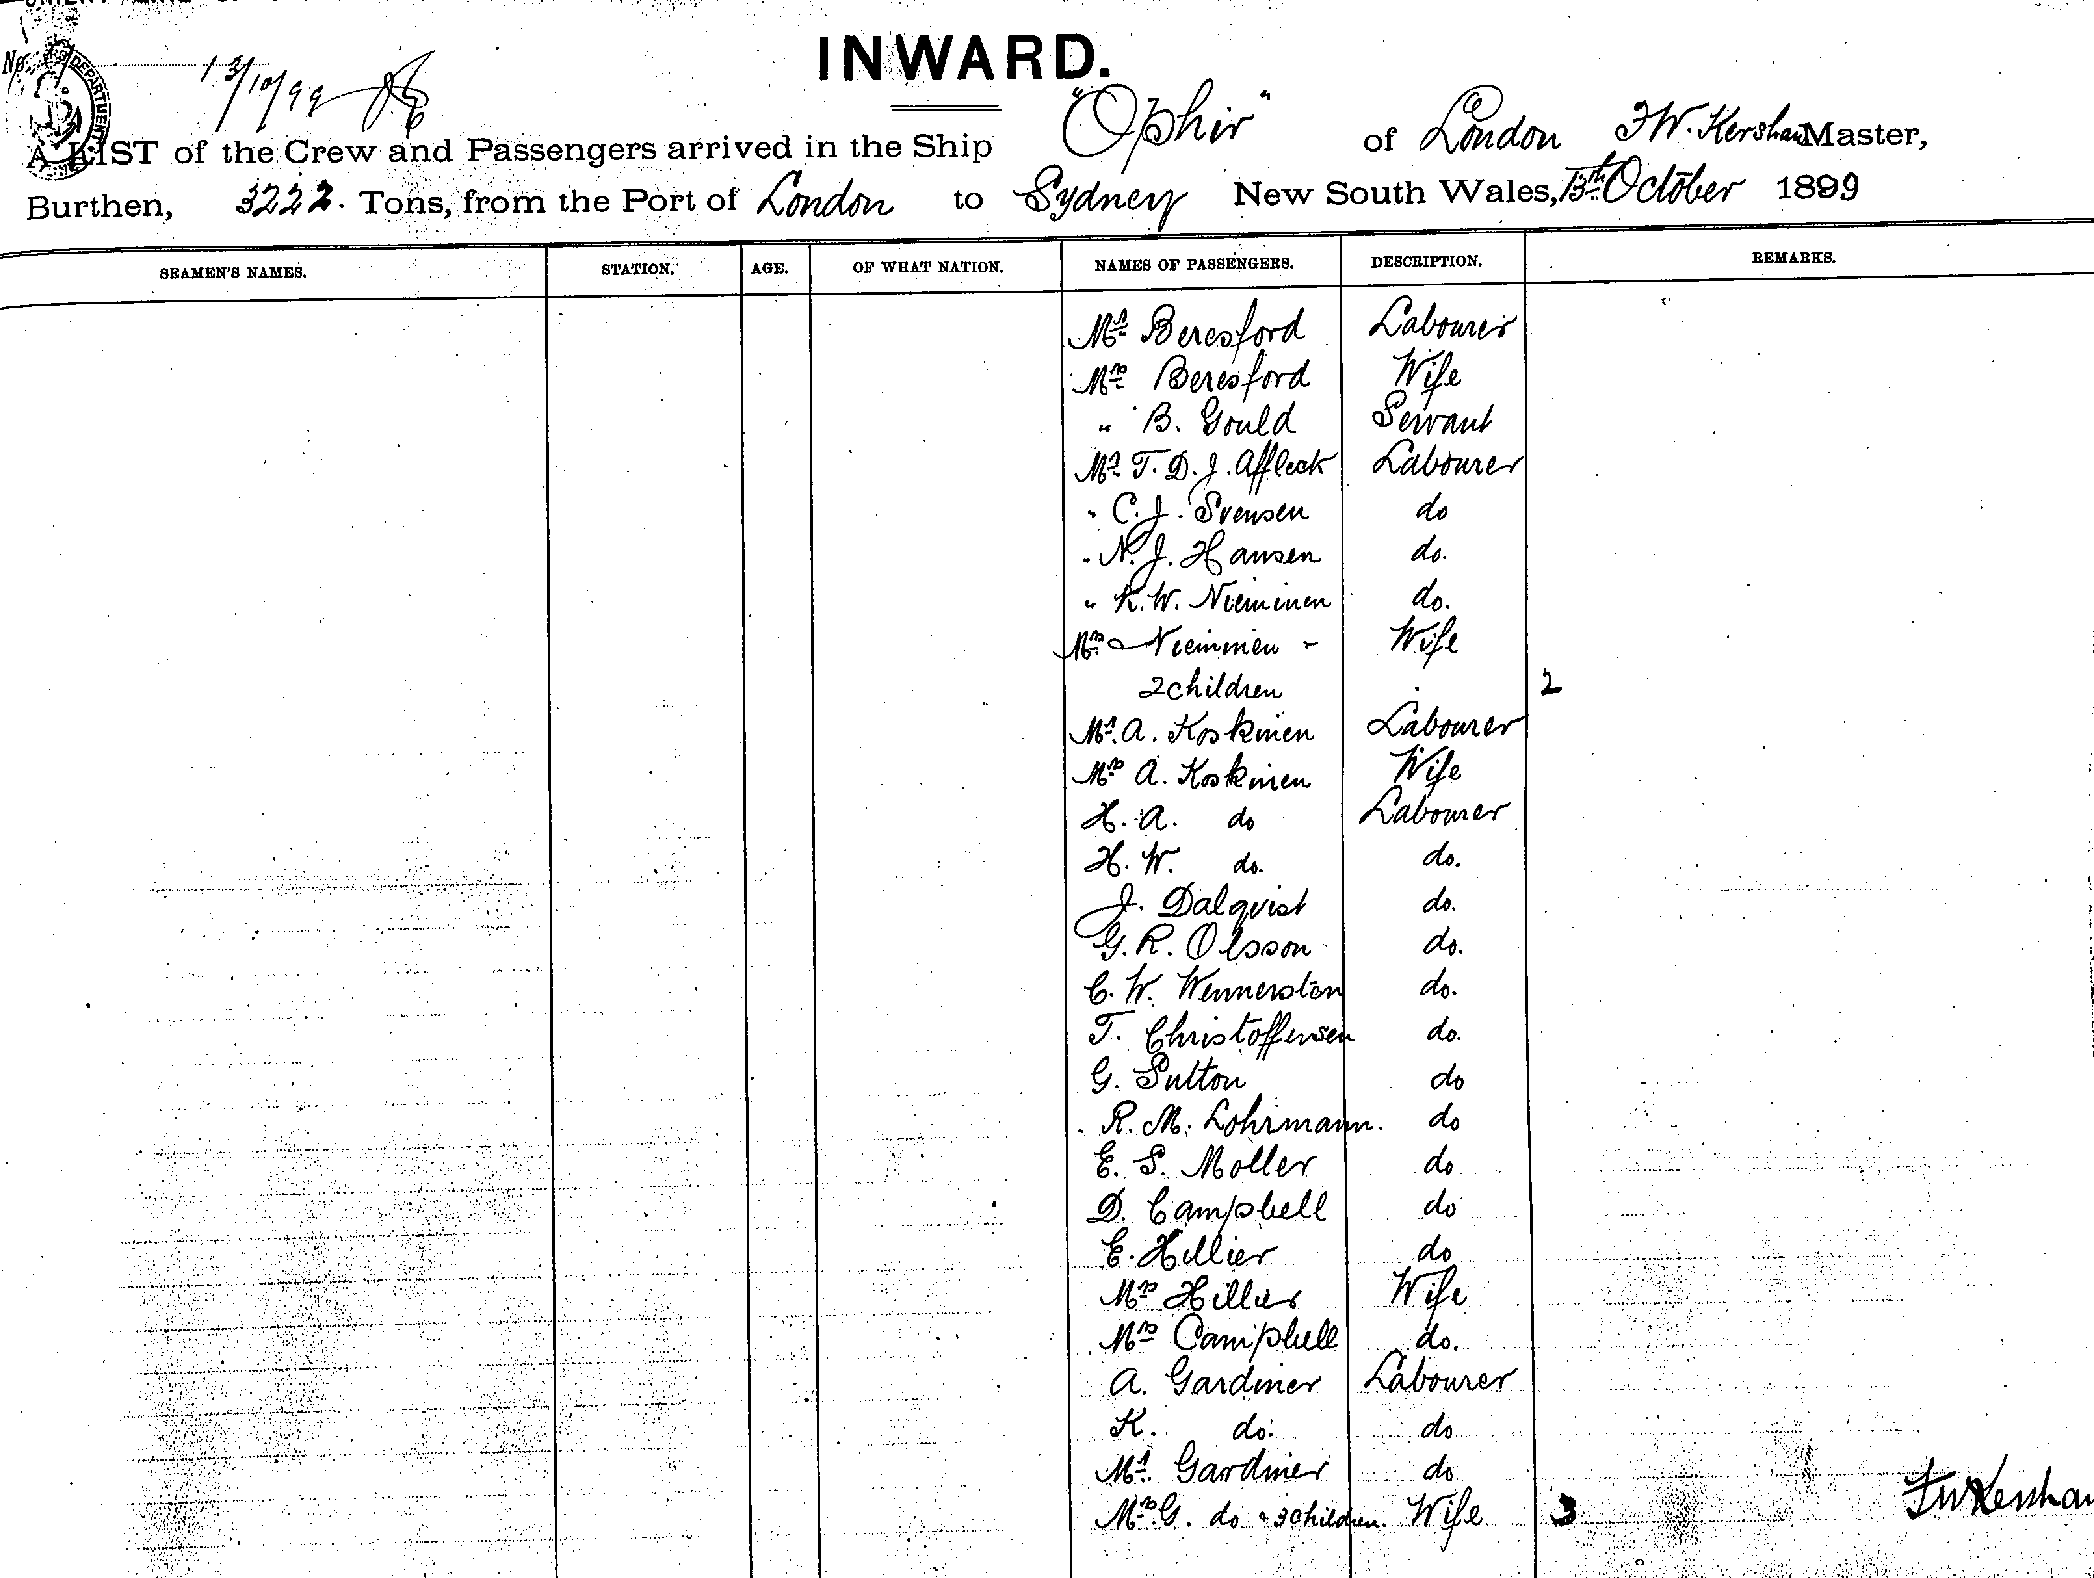 No.
DEPARTMENT
13/10/99
INWARD.
A LIST of the Crew and Passengers arrived in the Ship "Ophir" of London F W. Kershaw Master,
Burthen, 3222. Tons, from the Port of London to Sydney New South Wales, 13th October 1899
SEAMEN'S NAMES. STATION. AGE. OF WHAT NATION. NAMES OF PASSENGERS. DESCRIPTION. REMARKS.
Mr Beresford Labourer
Mrs Beresford Wife
" B. Gould Servant
Mr T. D. J. Affleck Labourer
" C. J. Svensen do
" N. J. Hansen do.
" K. W. Nieminen do.
Mrs Nieminen - Wife
2 children 2
Mr. A. Koskinen Labourer
Mrs A. Koskinen Wife
H. A. do Labourer
H. W. do. do.
J. Dalqvist do.
G. R. Olsson do.
C. W. Wennersten do.
T. Christoffersen do.
G. Sutton do
R. M. Lohrmann. do
E. S. Moller do
D. Campbell do
E. Hillier do
Mrs Hillier Wife
Mrs Campbell do.
A. Gardiner Labourer
K. do. do
Mr. Gardiner do
Mrs. G. do " 3 children. Wife 3
FW Kershaw